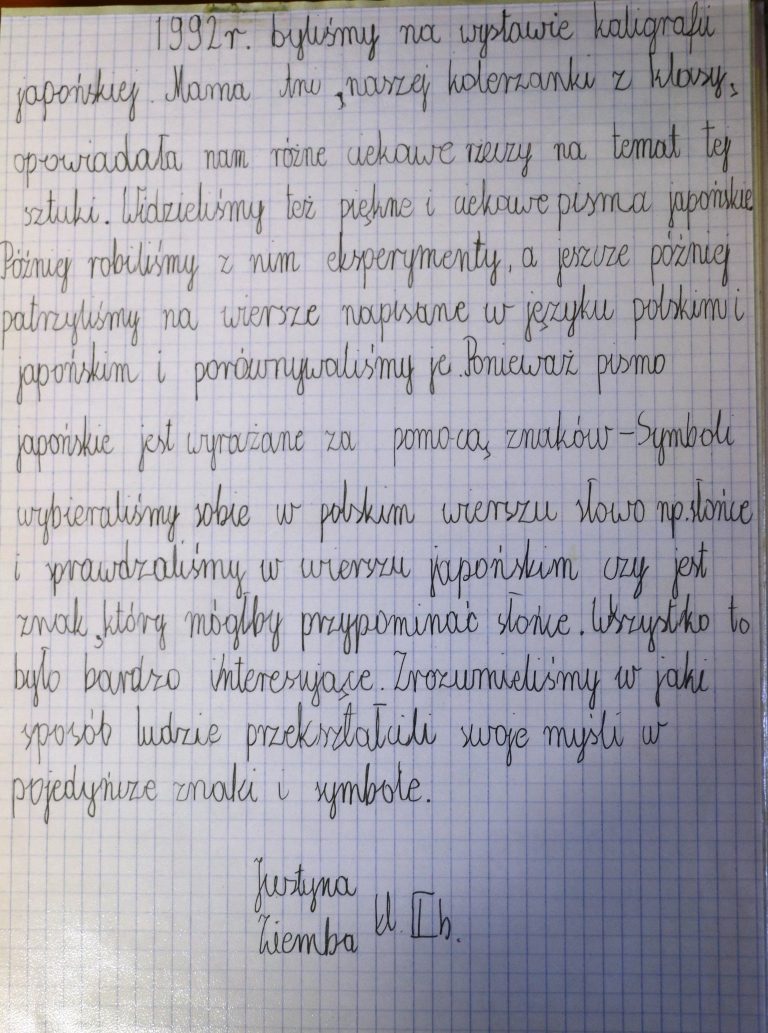 1992r. byliśmy na wystawie kaligrafii
japońskiej. Mama Ani, naszej kolerzanki z klasy,
opowiadała nam różne ciekawe rzeczy na temat tej
sztuki. Widzieliśmy też piękne i ciekawe pisma japońskie.
Później robiliśmy z nim eksperymenty, a jeszcze później
patrzyliśmy na wiersze napisane w języku polskim i
japońskim i porównywaliśmy je. Ponieważ pismo
japońskie jest wyrażane za pomocą znaków-Symboli
wybieraliśmy sobie w polskim wierszu słowo np. słońce
i sprawdzaliśmy w wierszu japońskim czy jest
znak, który mógłby przypominać słońce. Wszystko to
było bardzo interesujące. Zrozumieliśmy w jaki
sposób ludzie przekształcili swoje myśli w
pojedyńcze znaki i symbole.
Justyna
Ziemba kl. II b.